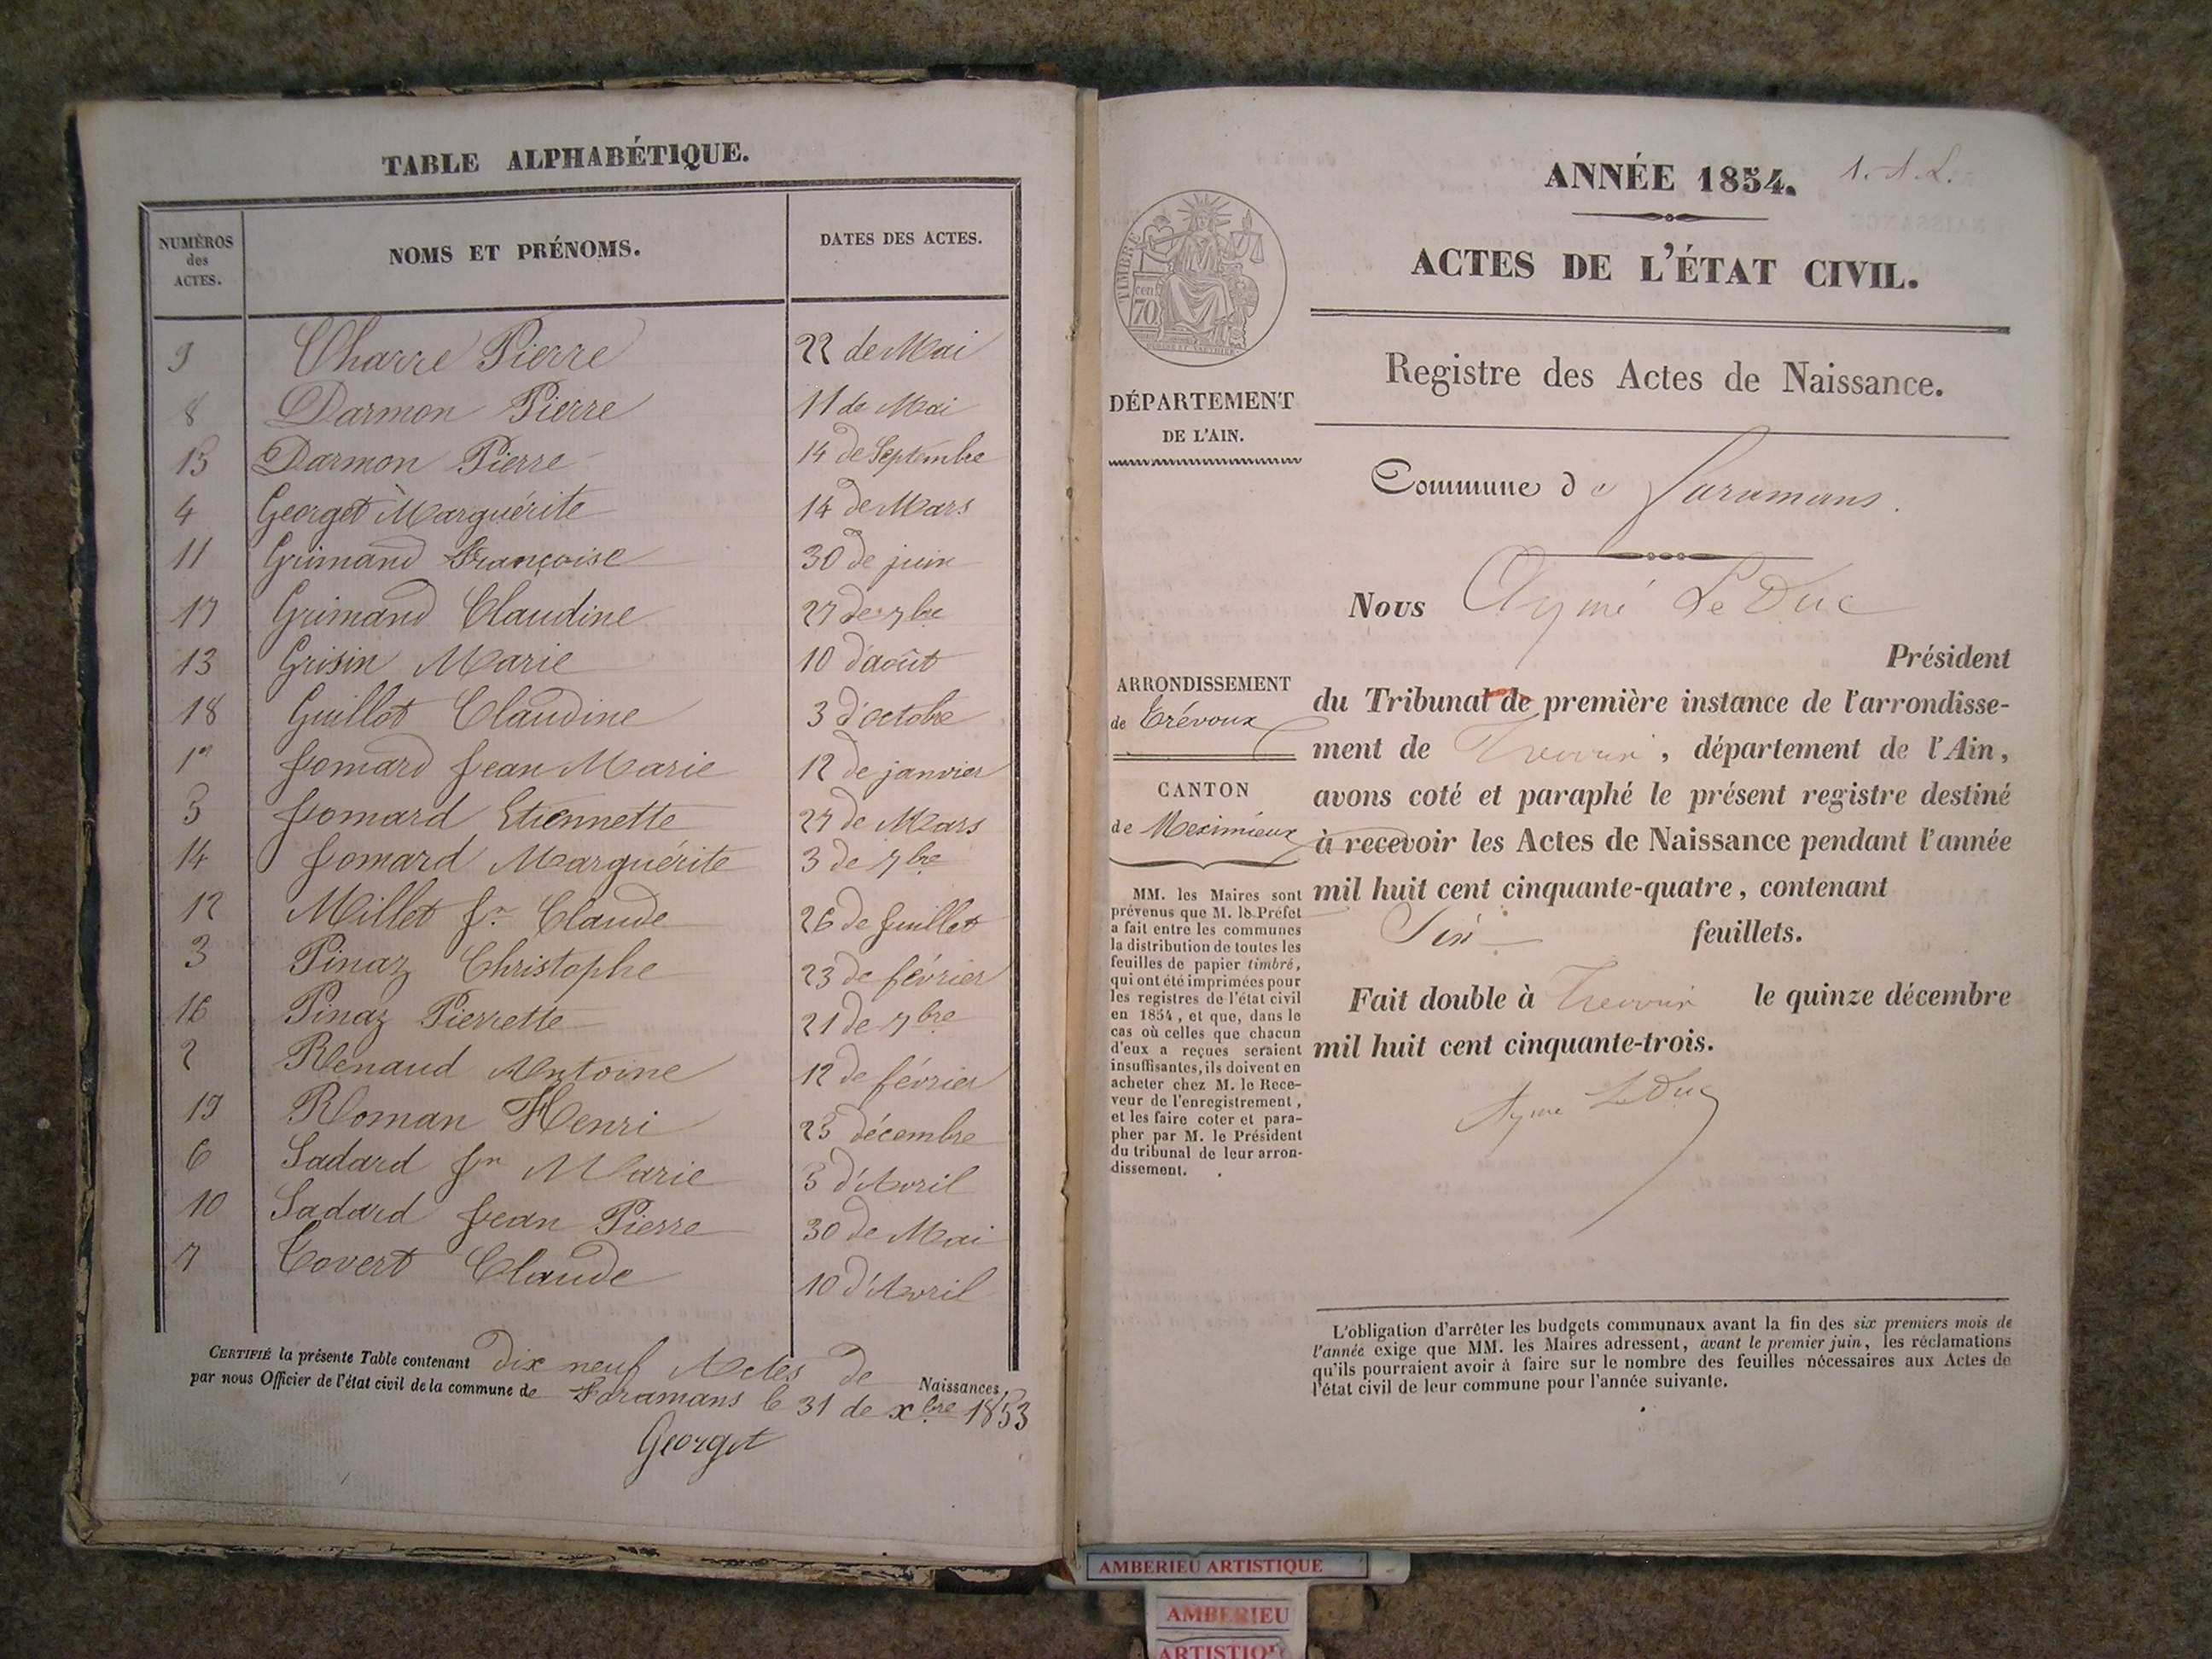 TABLE ALPHABÉTIQUE.
NUMÉROS des ACTES. NOMS ET PRÉNOMS. DATES DES ACTES.
9 Charre Pierre 22 de Mai
8 Darmon Pierre 11 de Mai
15 Darmon Pierre 14 de Septembre
4 Georget Marguérite 14 de Mars
11 Grimand Françoise 30 de juin
17 Grimand Claudine 27 de 7bre
13 Grisin Marie 10 d'août
18 Guillot Claudine 3 d'octobre
1er Jomard Jean Marie 12 de janvier
5 Jomard Etiennette 27 de Mars
14 Jomard Marguérite 3 de 7bre
12 Millet Jn Claude 26 de Juillet
3 Pinaz Christophe 23 de février
16 Pinaz Pierrette 21 de 7bre
2 Renaud Antoine 12 de février
19 Roman Henri 23 décembre
6 Sadard Jn Marie 5 d'Avril
10 Sadard Jean Pierre 30 de Mai
7 Tovert Claude 10 d'Avril
CERTIFIÉ la présente Table contenant dix neuf Actes de Naissances
par nous Officier de l'état civil de la commune de Faramans le 31 de xbre 1853
Georget
ANNÉE 1854.
ACTES DE L'ÉTAT CIVIL.
Registre des Actes de Naissance.
TIMBRE
70 cen
DÉPARTEMENT
DE L'AIN.
Commune de Faramans.
Nous Aymé Le Duc
Président
du Tribunal de première instance de l'arrondisse-
ment de Trevoux, département de l'Ain,
avons coté et paraphé le présent registre destiné
à recevoir les Actes de Naissance pendant l'année
mil huit cent cinquante-quatre, contenant
Six feuillets.
Fait double à Trevoux le quinze décembre
mil huit cent cinquante-trois.
Aymé Le Duc
ARRONDISSEMENT
de Trévoux
CANTON
de Meximieux
MM. les Maires sont
prévenus que M. le Préfet
a fait entre les communes
la distribution de toutes les
feuilles de papier timbré,
qui ont été imprimées pour
les registres de l'état civil
en 1854, et que, dans le
cas où celles que chacun
d'eux a reçues seraient
insuffisantes, ils doivent en
acheter chez M. le Rece-
veur de l'enregistrement,
et les faire coter et para-
pher par M. le Président
du tribunal de leur arron-
dissement.
L'obligation d'arrêter les budgets communaux avant la fin des six premiers mois de
l'année exige que MM. les Maires adressent, avant le premier juin, les réclamations
qu'ils pourraient avoir à faire sur le nombre des feuilles nécessaires aux Actes de
l'état civil de leur commune pour l'année suivante.
AMBERIEU ARTISTIQUE
AMBERIEU
ARTISTIQU